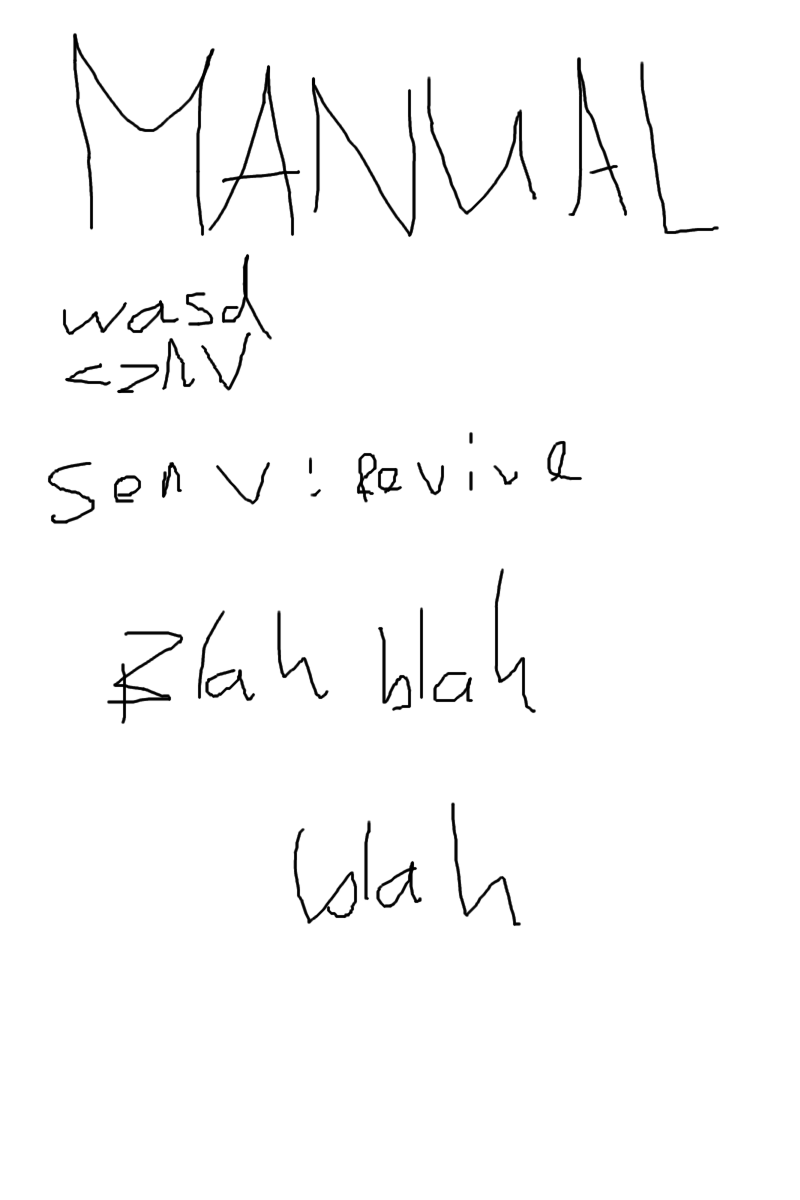 MANUAL
wasd
<>ΛV
S en V : Revive
Blah blah
blah